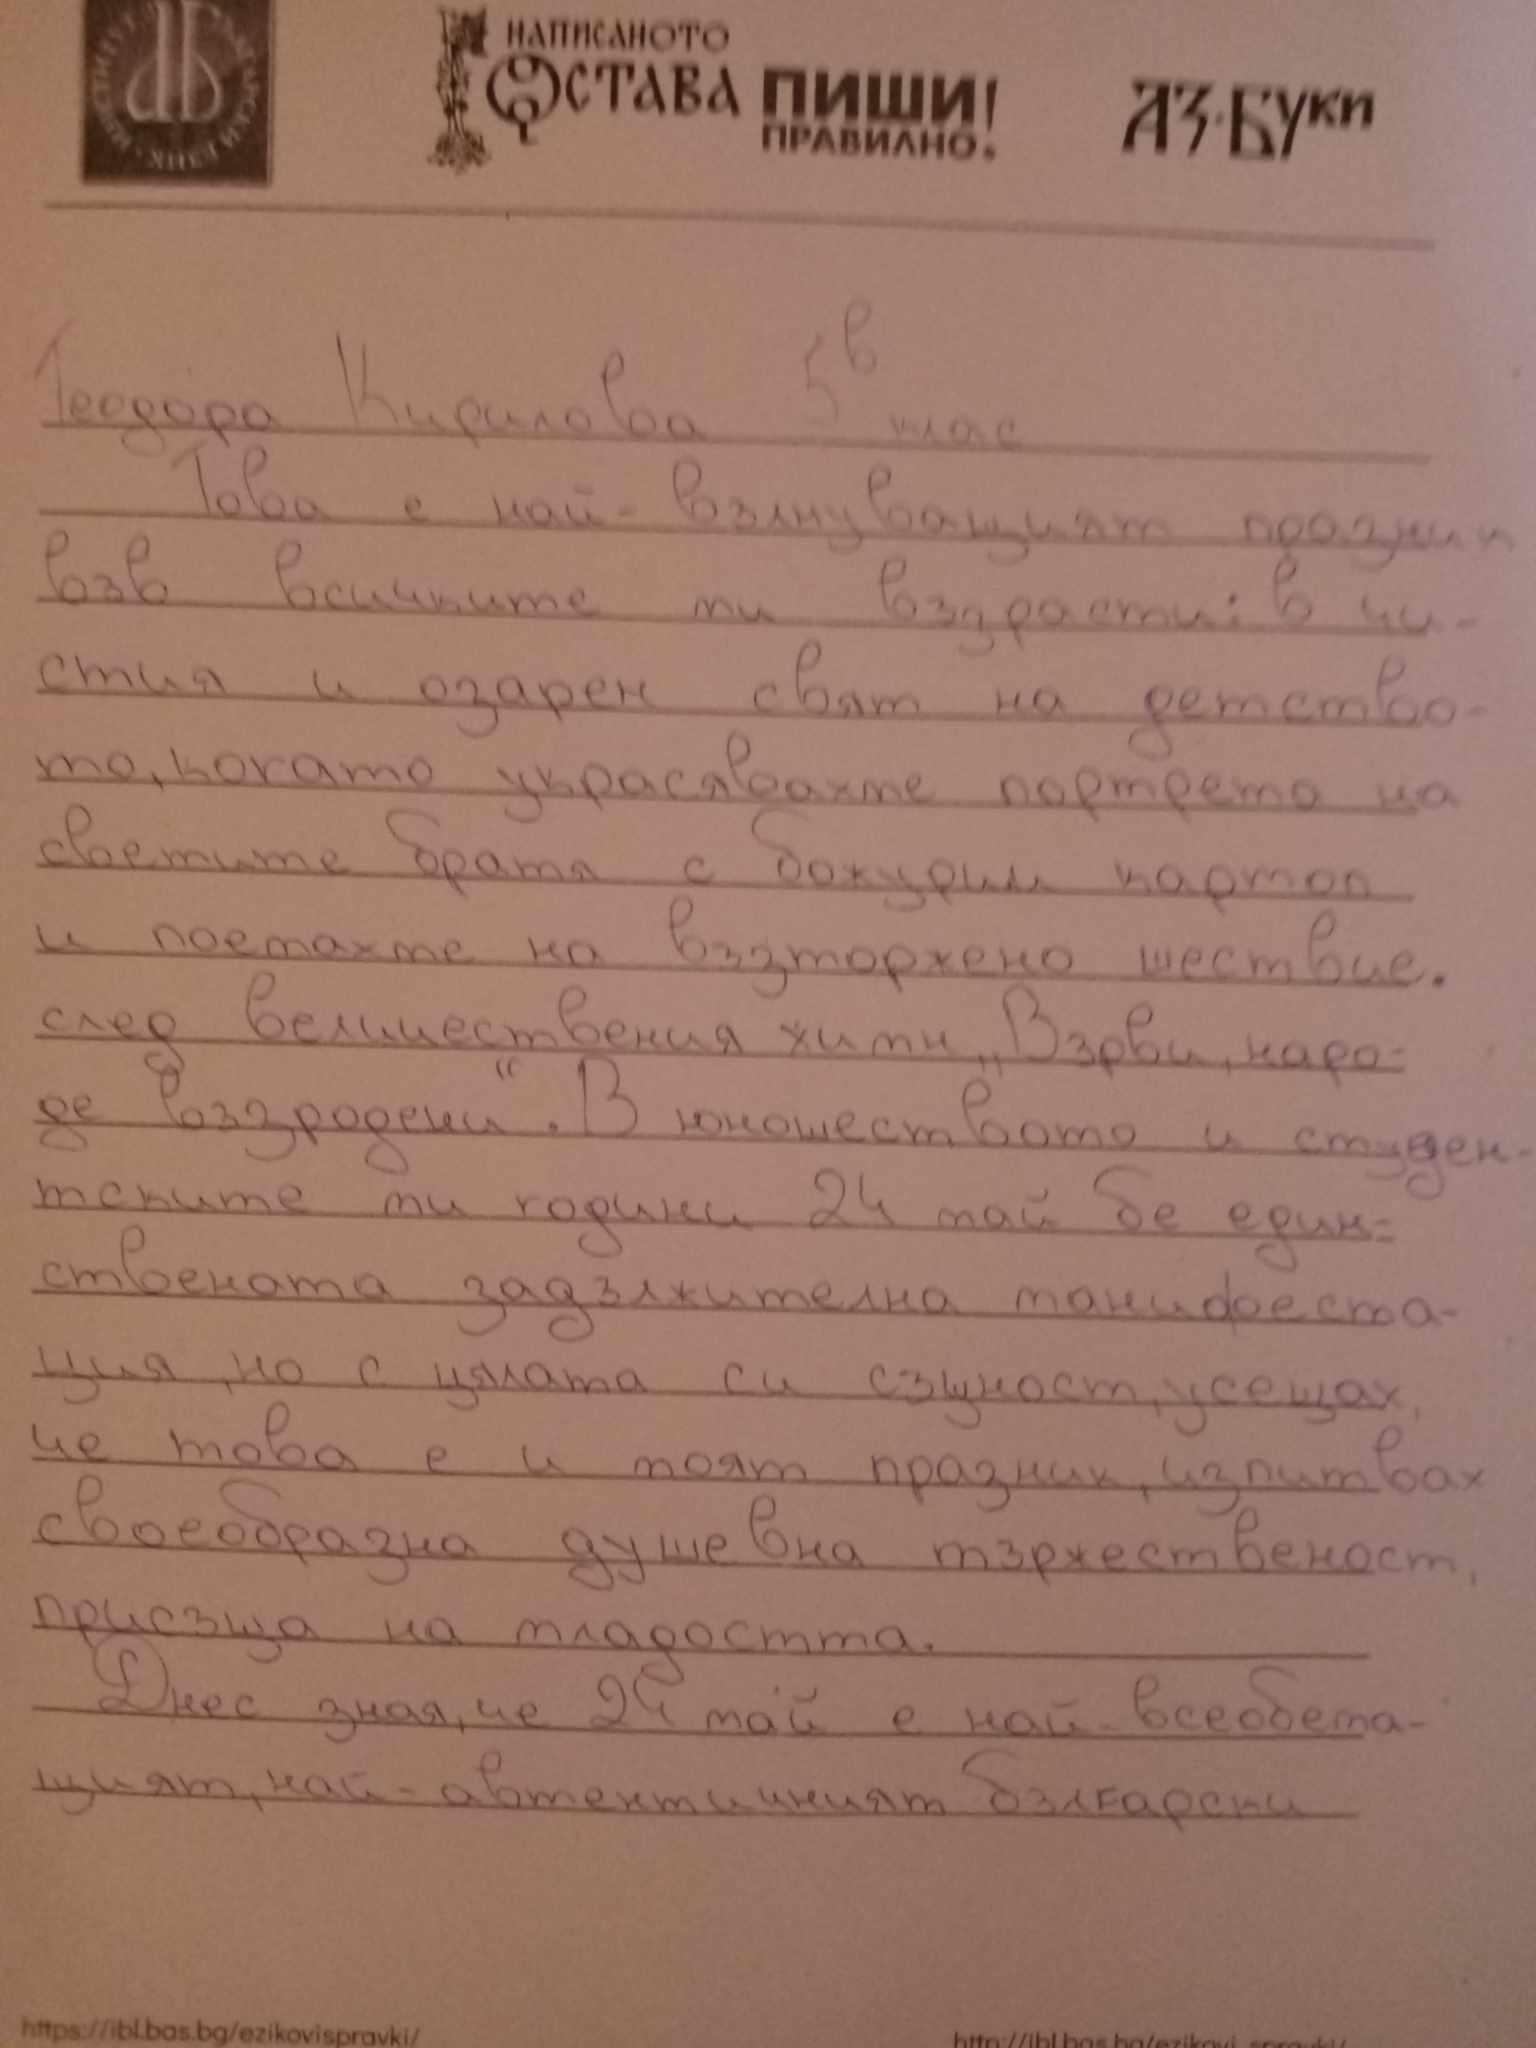 ИНСТИТУТ ЗА БЪЛГАРСКИ ЕЗИК
НАПИСАНОТО
ОСТАВА ПИШИ!
ПРАВИЛНО.
АЗ·БУКИ
Теодора Кирилова 5в клас
Това е най-вълнуващият празник
във всичките ми възрасти: в чи-
стия и озарен свят на детство-
то, когато украсявахте портрета на
светите братя с божурии картоп
и поетахте на възторжено шествие.
след величествения химн „Върви, наро-
де възродени". В юношеството и студен-
тските ми години 24 май бе един-
ствената задължителна манифеста-
ция, но с цялата си същност, усещах,
че това е и моят празник, изпитвах
своеобразна душевна тържественост,
присъща на младостта.
Днес зная, че 24 май е най-всеобета-
щият, най-автентичният български
https://ibl.bas.bg/ezikovispravki/
http://ibl.bas.bg/ezikovi_spravki/